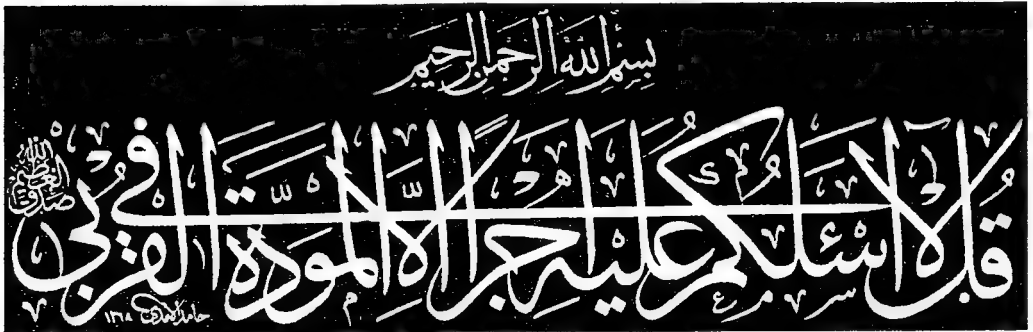 بِسْمِ اللهِ الرَّحْمٰنِ الرَّحِيمِ
قُلْ لَآ اَسْئَلُكُمْ عَلَيْهِ اَجْرًا اِلَّا الْمَوَدَّةَ فِي الْقُرْبٰى
صدق الله العظيم
حامد الآمدي ١٣٦٨